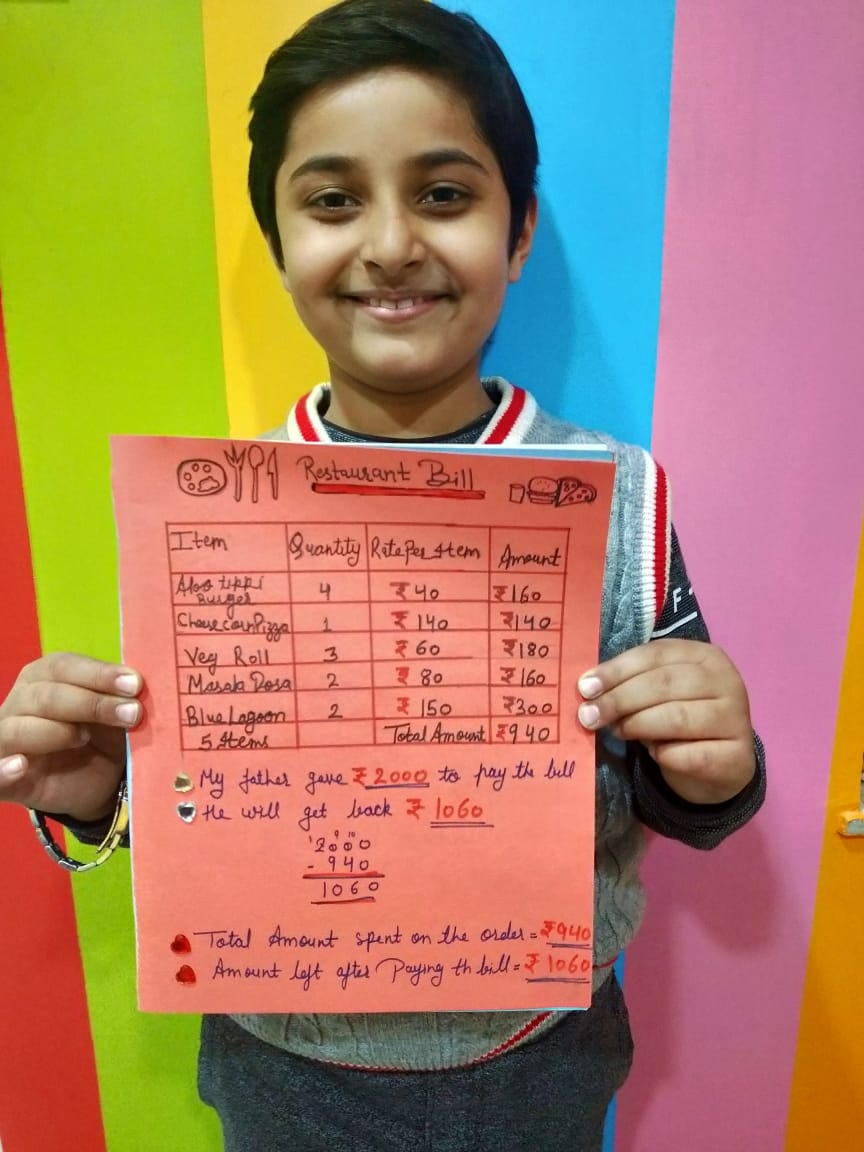 Restaurant Bill
Item Quantity Rate Per Item Amount
Aloo tikki Burger 4 ₹40 ₹160
Cheese Corn Pizza 1 ₹140 ₹140
Veg Roll 3 ₹60 ₹180
Masala Dosa 2 ₹80 ₹160
Blue Lagoon 2 ₹150 ₹300
5 Items Total Amount ₹940
My father gave ₹2000 to pay the bill
He will get back ₹1060
1 9 10
2000
- 940
1060
Total Amount spent on the order = ₹940
Amount left after Paying th bill = ₹1060
F